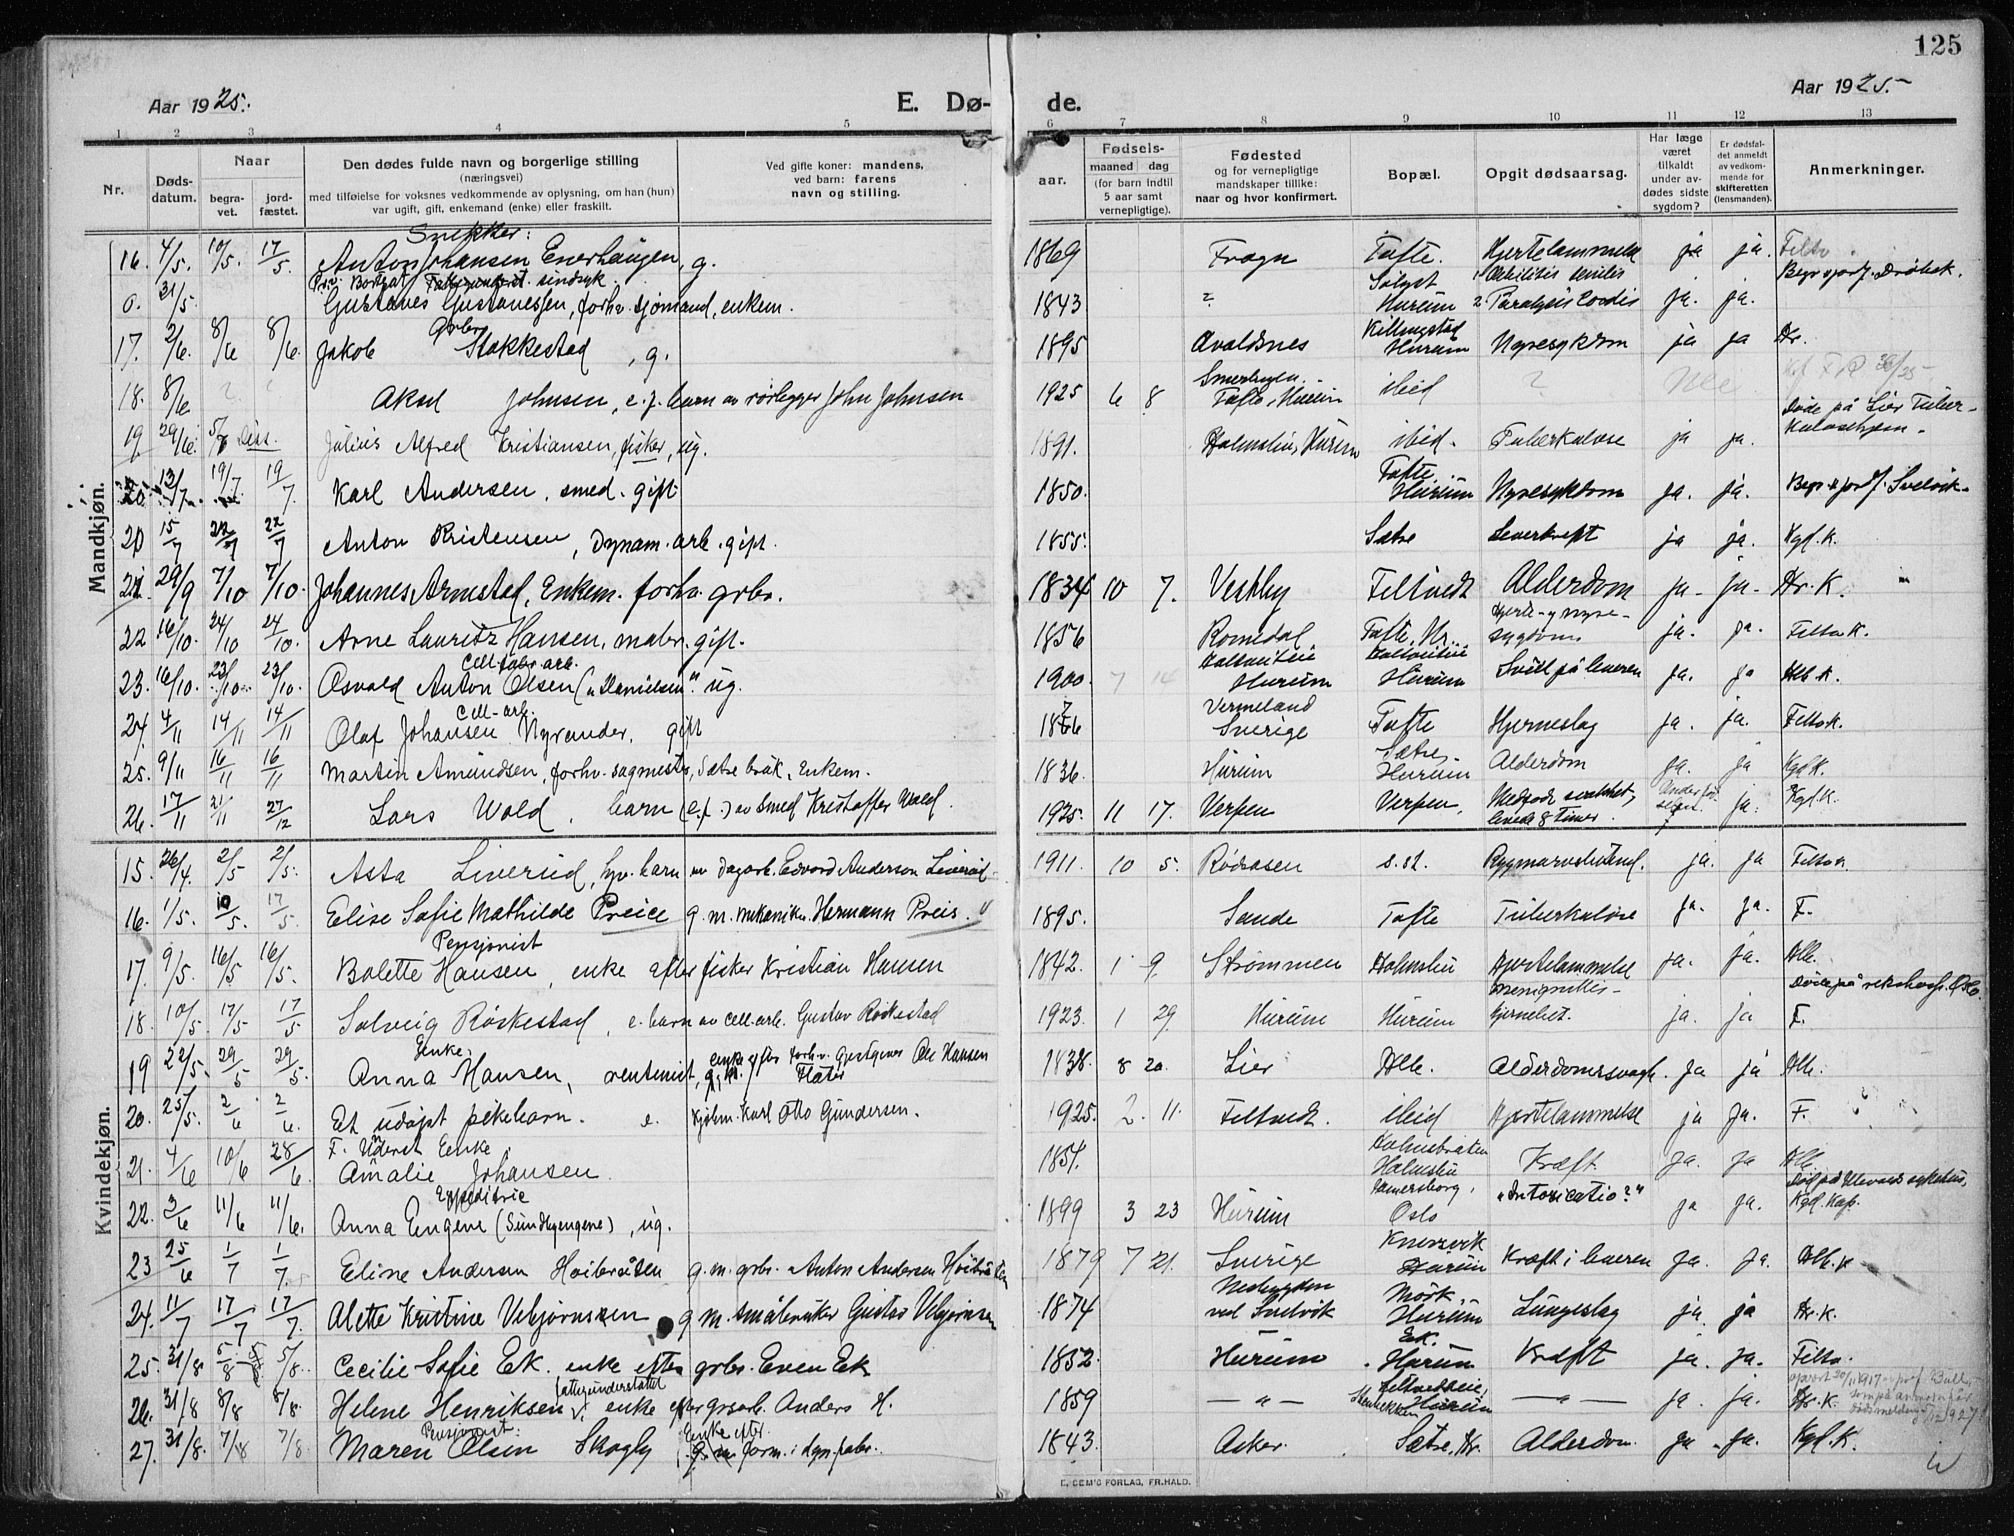 125
Aar 1925.
E. Dø- de.
Aar 1925.
1 2 3 4 5 6 7 8 9 10 11 12 13
Nr. Døds-datum. Naar begra-vet. jord-fæstet. Den dødes fulde navn og borgerlige stilling (næringsvei) med tilføielse for voksnes vedkommende av oplysning, om han (hun) var ugift, gift, enkemand (enke) eller fraskilt. Ved gifte koner: mandens, ved barn: farens navn og stilling. aar. Fødsels- maaned dag (for barn indtil 5 aar samt vernepligtige). Fødested og for vernepligtige mandskaper tillike: naar og hvor konfirmert. Bopæl. Opgit dødsaarsag. Har læge været tilkaldt under av-dødes sidste sygdom? Er dødsfal-det anmeldt av vedkom-mende for skifteretten (lensmanden). Anmerkninger.
Mandkjøn.
16. 4/5. 10/5. 17/5 Snekker: Anton Johansen Enerhaugen, g. 1869 Fragn Tofte. Hjertelammelse ja ja. Feltv. Begr. & jordf. Drøbak.
0. 31/5. sindsyk. Gustaves Gustavessen, forhv. sjømand, enkem. 1843 ? Hurum Paralysis Cordis ja. ja.
17. 2/6. 8/6 8/6. Jakob Grbr. Stokkestad, g. 1895 Avaldsnes Killingstad Hurum Nyresykdom ja ja Hr.
18. 8/6 ? ? Aksel Johnsen, e. f. barn av rørlegger John Johnsen 1925 6 8 Tofte, Hurum ibid ?
19. 29/6. 5/7 Julius Alfred Kristiansen, fisker, ug. 1891. Holmsbu, Hurum ibid. Tuberkulose ja ja. Døde på Lier Tuber-kulosehjem.
20. 13/7. 19/7. 19/7. Karl Andersen, smed. gift 1850. Tofte, Hurum Nyresykdom ja. ja. Begr. & jordf. i Svelvik.
20 15/7 22/7 22/7 Anton Kristensen, Dynam. arb. gipt. 1855. Sætre Leverkreft ja ja. Kgl. K.
21 29/9 7/10 7/10. Johannes Arnestad, Enkem. forhv. grbr. 1834 10 7. Vestby Feltvedt Alderdom ja- ja- Hr. K.
22 16/10. 24/10 24/10. Arne Lauritz Hansen, maler. gift. 1856 Romedal Tofte, Hr. Hjerte- og nyre-sygdom. ja. ja. Feltv. K.
23. 16/10. 23/10. 23/10. Cell-fabr. arb. Osvald Anton Olsen ("Danielsen") ug. 1900. 7 14 Hurum Hurum Svull på leveren ja. ja Hlb. K.
24. 4/11 14/11 14/11 Cell-arb. Olaf Johansen Nyrander. gift Vermeland Sverige Tofte Hjerneslag ja. ja. Feltv. K.
25. 9/11 16/11 16/11 Martin Amundsen, forhv. sagmester, Sætre bruk, Enkem. 1836. Hurum Sætre, Hurum Alderdom ja. ja Kgl. K.
26. 17/11 21/11 27/12 Lars Wold, barn (e.f.) av smed Kristoffer Wold. 1925. 11 17. Verpen Verpen, Medfødt svakhet, levede 8 timer. ja. Kgl. K.
Kvindekjøn.
15. 26/4. 2/5 2/5. Asta Liverud, hjv. barn av Dagarb. Edvard Anderson Liverud. 1911. 10 5. Rødtosen s. st. Rygmarvslidend. ja. ja Feltv.
16. 1/5. 10/5. 17/5 Elise Sofie Mathilde Preice g. m. mekaniker Hermann Preis. 1895. Sande Tofte Tuberkulose ja. ja. F.
17. 9/5. 16/5 16/5. Pensjonist Bolette Hansen, enke efter fisker Kristian Hansen 1842. 1 9. Strømmen Holmsbu Hjertelammelse ja. ja. Hlb.
18. 10/5. 17/5 17/5 Solveig Røskestad, e. barn av cell. arb. Gustav Røskestad 1923. 1 29 Hurum Hurum Meningnittis-hjernebet. ja. ja Døde på rikshosp. Oslo. F.
19 22/5. 29/5 29/5. Enke. Anna Hansen, rentenist, enke efter forhv. Gjestgiver Ole Hansen 1838. 8 20. Lier Hlb. Alderdomssvagh. ja ja Hlb.
20. 25/5. 2/6 2/6. Et udøpt pikebarn. e. Kjøbm. Karl Otto Gundersen. 1925. 2. 11. Feltvedt. ibid Hjertelammelse ja ja. F.
21. 4/6 10/6 28/6 Enke. Amalie Johansen. 1854. Holmsbråten Holmsbu Kræft. ja. ja Hlb.
22. 3/6 11/6 11/6. Expeditrise Anna Engene (Sundbyengene), ug. 1899 3 23 Hurum Hamersborg, Oslo "Intoxicatio?" ja ja. Død på Ullevaals sykehus, Kgl. Kap.
23 25/6 1/7 1/7. Eline Andersen Høibråten g. m. grbr. Anton Andersen Høibråten 1879 7 21. Sverige Knivsvik Hurum Kræft i leveren ja. ja. Hlb. K
24. 11/7 17/7 17/7. Alette Kristine Vebjørnsen g. m. småbruker Gustav Vebjørnsen 1874 Nesbygden ved Svelvik Mörk, Hurum Lungeslag ja. ja Hr. K.
25. 31/8 5/8 5/8. Cecilie Sofie Eek. enke efter grbr. Even Eek 1852. Hurum Ek. Hurum Kræft ja. ja. Feltv.
26. 31/8 8/8 8/8. Helene Henriksen fattigunderstøttet enke efter grsarb. Anders H. 1859 — „ — Hurum — „ — ja. ja. Hr. K.
27. 31/8. 7/8 7/8. Pensjonist: Maren Olsen Skogly Enke efter form. i dyn. fabr. 1843. Asker. Sætre, Hr. Alderdom. ja ja. Kgl. K.
E. SEM'S FORLAG, FR.HALD.